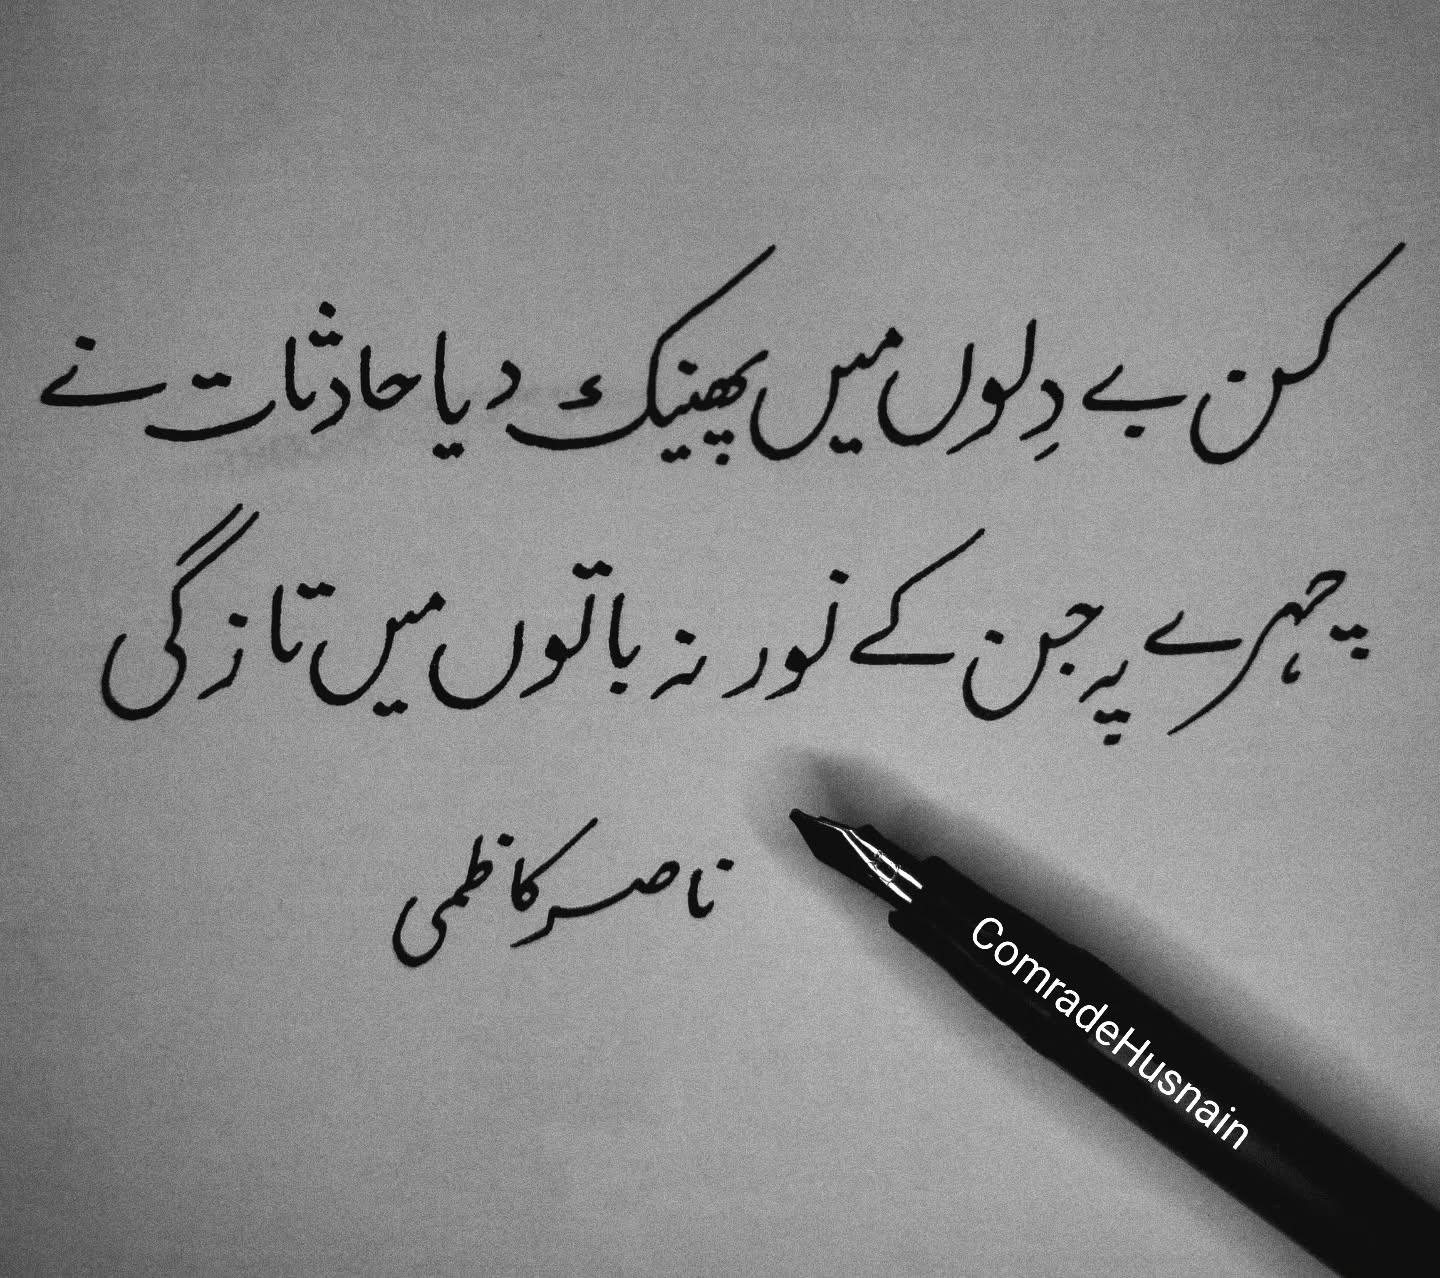 کن بے دِلوں میں پھینک دیا حادثات نے
چہرے پہ جن کے نور نہ باتوں میں تازگی
ناصر کاظمی
ComradeHusnain